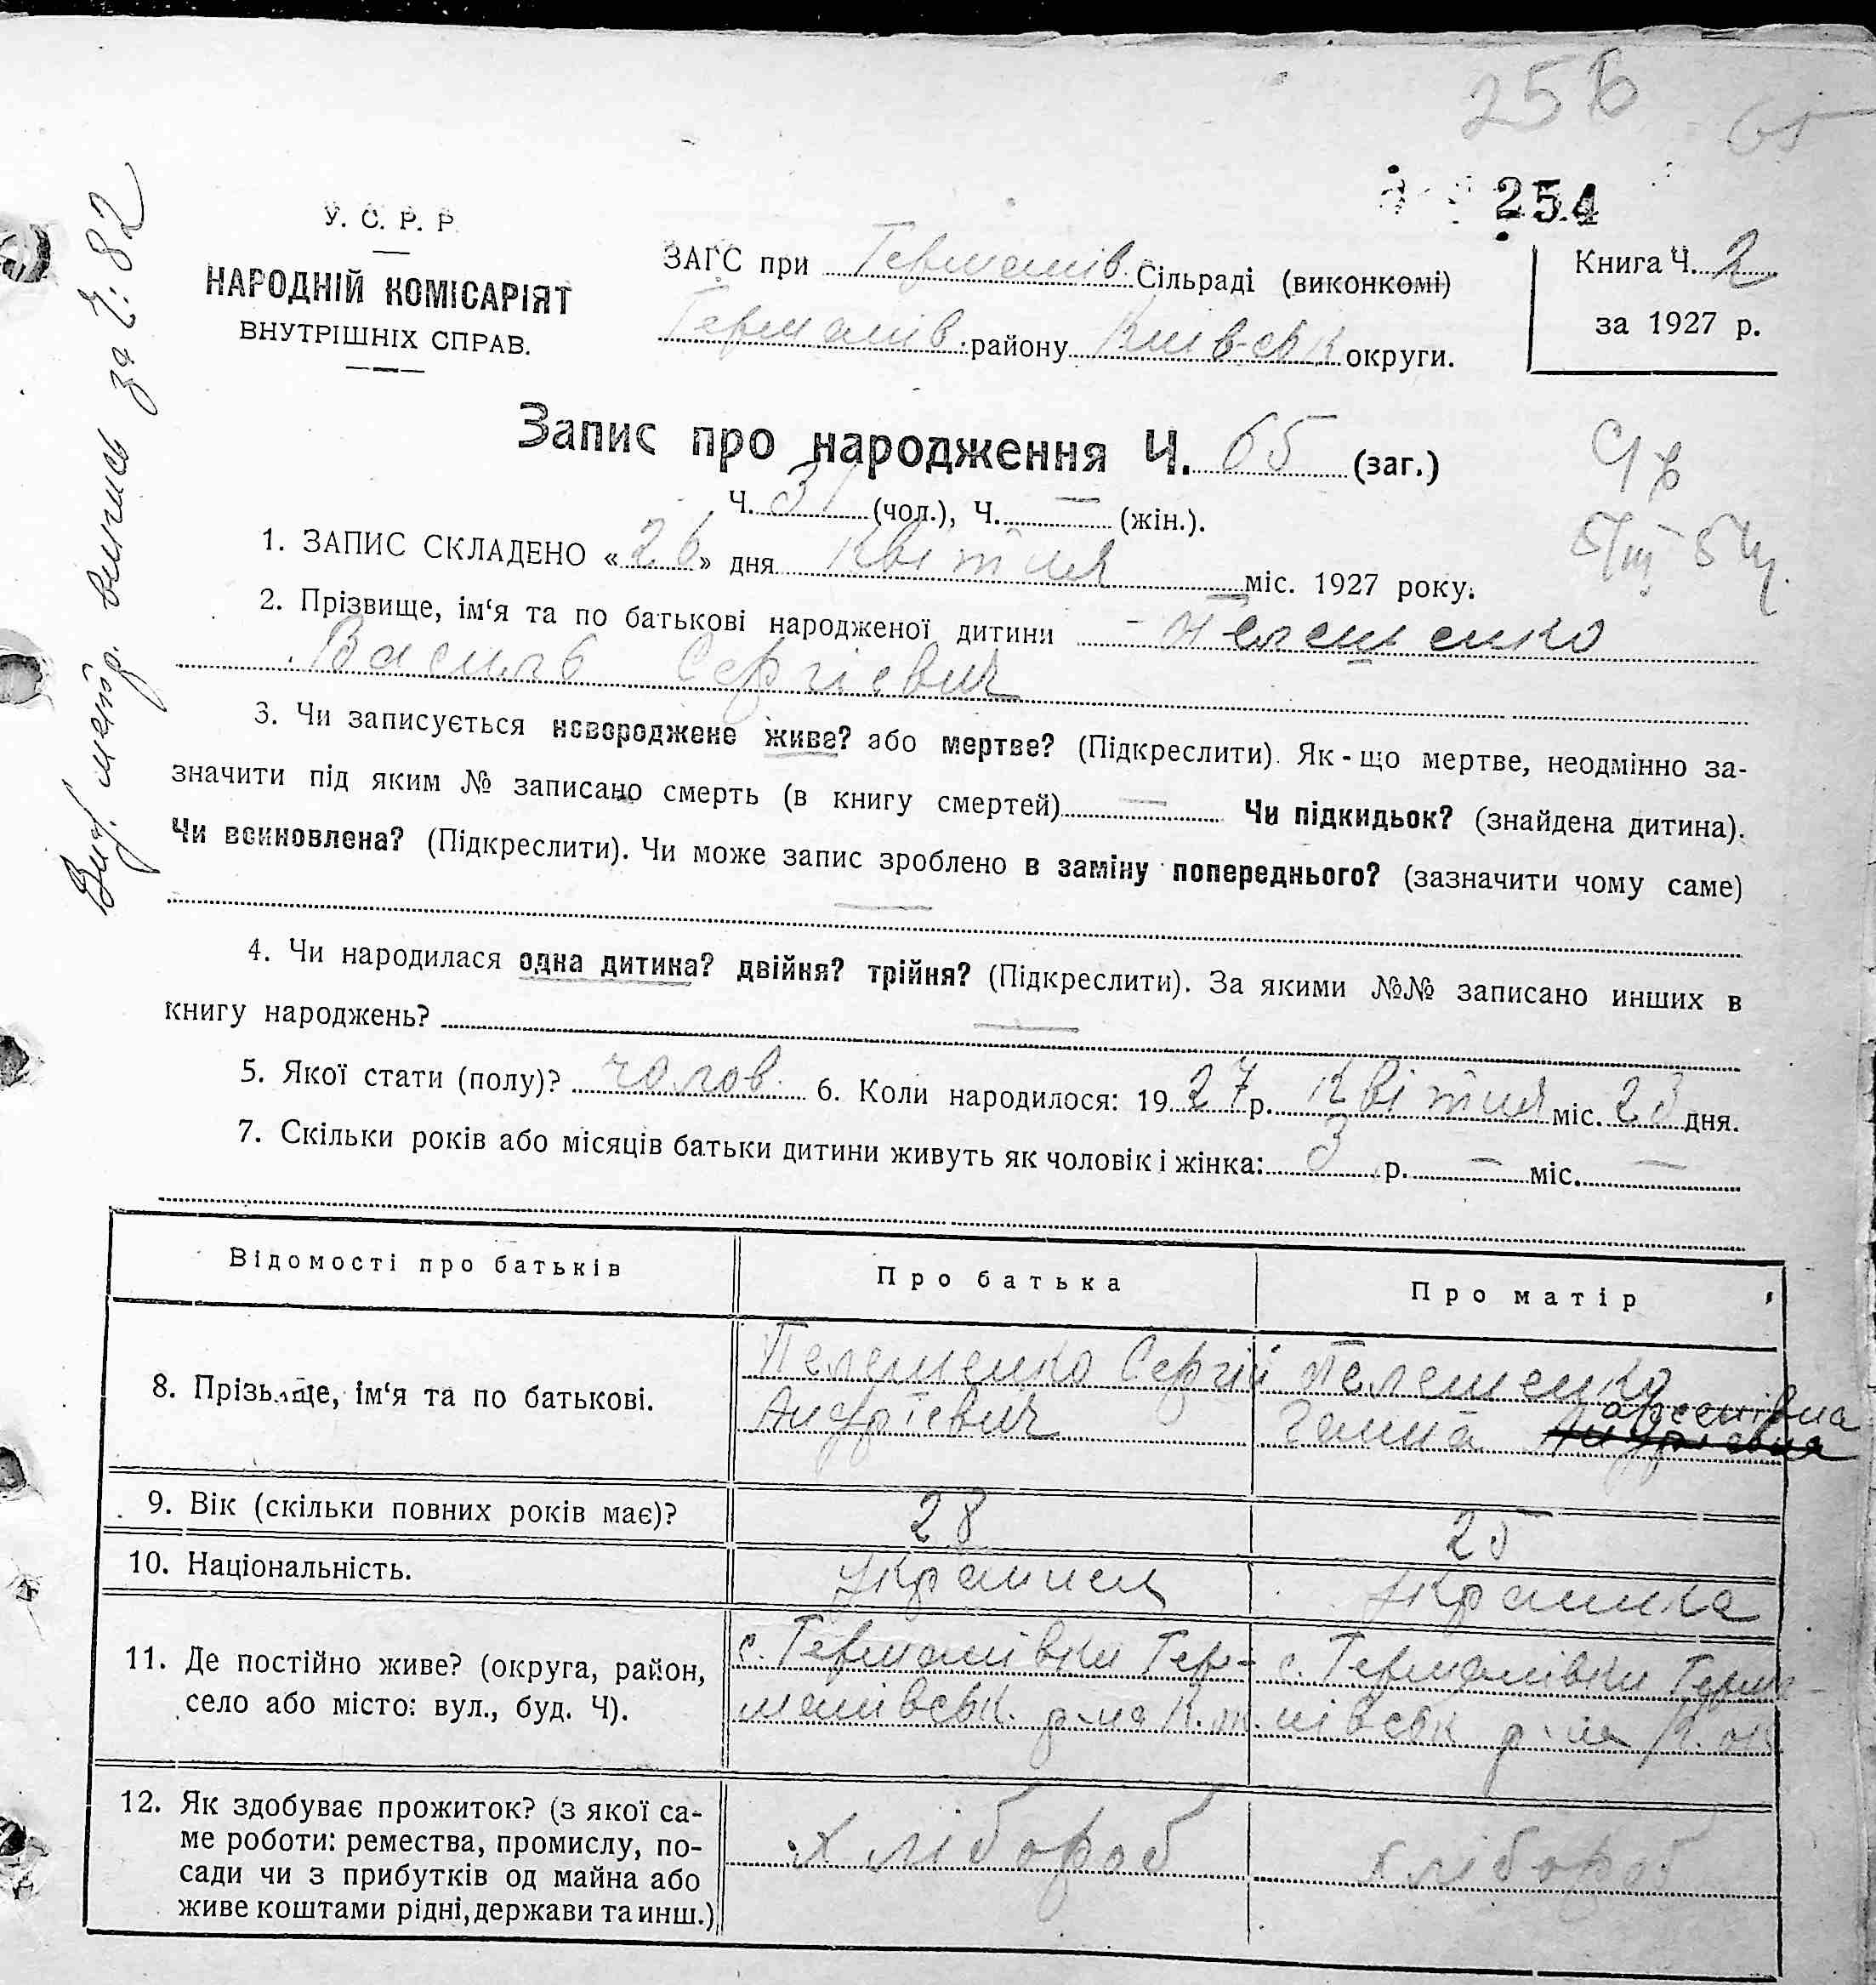 256
65
254
Вид. метр. виписъ за Ч: 82
У. С. Р. Р.
НАРОДНІЙ КОМІСАРІЯТ
ВНУТРІШНІХ СПРАВ.
ЗАГС при Германів. Сільраді (виконкомі)
Германів. району Київськ округи.
Книга Ч. 2
за 1927 р.
Запис про народження Ч. 65 (заг.)
Ч. 31 (чол.), Ч. — (жін.).
1. ЗАПИС СКЛАДЕНО «26» дня квітня міс. 1927 року.
2. Прізвище, ім‘я та по батькові народженої дитини Пелешенко
Василь Сергієвич
3. Чи записується новороджене живе? або мертве? (Підкреслити). Як-що мертве, неодмінно за-
значити під яким № записано смерть (в книгу смертей) — Чи підкидьок? (знайдена дитина).
Чи всиновлена? (Підкреслити). Чи може запис зроблено в заміну попереднього? (зазначити чому саме)
—
4. Чи народилася одна дитина? двійня? трійня? (Підкреслити). За якими №№ записано инших в
книгу народжень? —
5. Якої стати (полу)? чолов. 6. Коли народилося: 1927 р. квітня міс. 23 дня.
7. Скільки років або місяців батьки дитини живуть як чоловік і жінка: 3 р. — міс. —
Відомості про батьків Про батька Про матір
8. Прізвище, ім‘я та по батькові.
Пелешенко Сергій
Андрієвич
Пелешенко
Арсенівна
Ганна Андрієвна
9. Вік (скільки повних років має)? 28 25
10. Національність. українец українка
11. Де постійно живе? (округа, район,
село або місто: вул., буд. Ч).
с. Германівки Гер-
манівськ. р-на К. ок.
с. Германівки Герма-
нівськ р-на К. ок
12. Як здобуває прожиток? (з якої са-
ме роботи: ремества, промислу, по-
сади чи з прибутків од майна або
живе коштами рідні, держави та инш.)
хлібороб
хлібороб